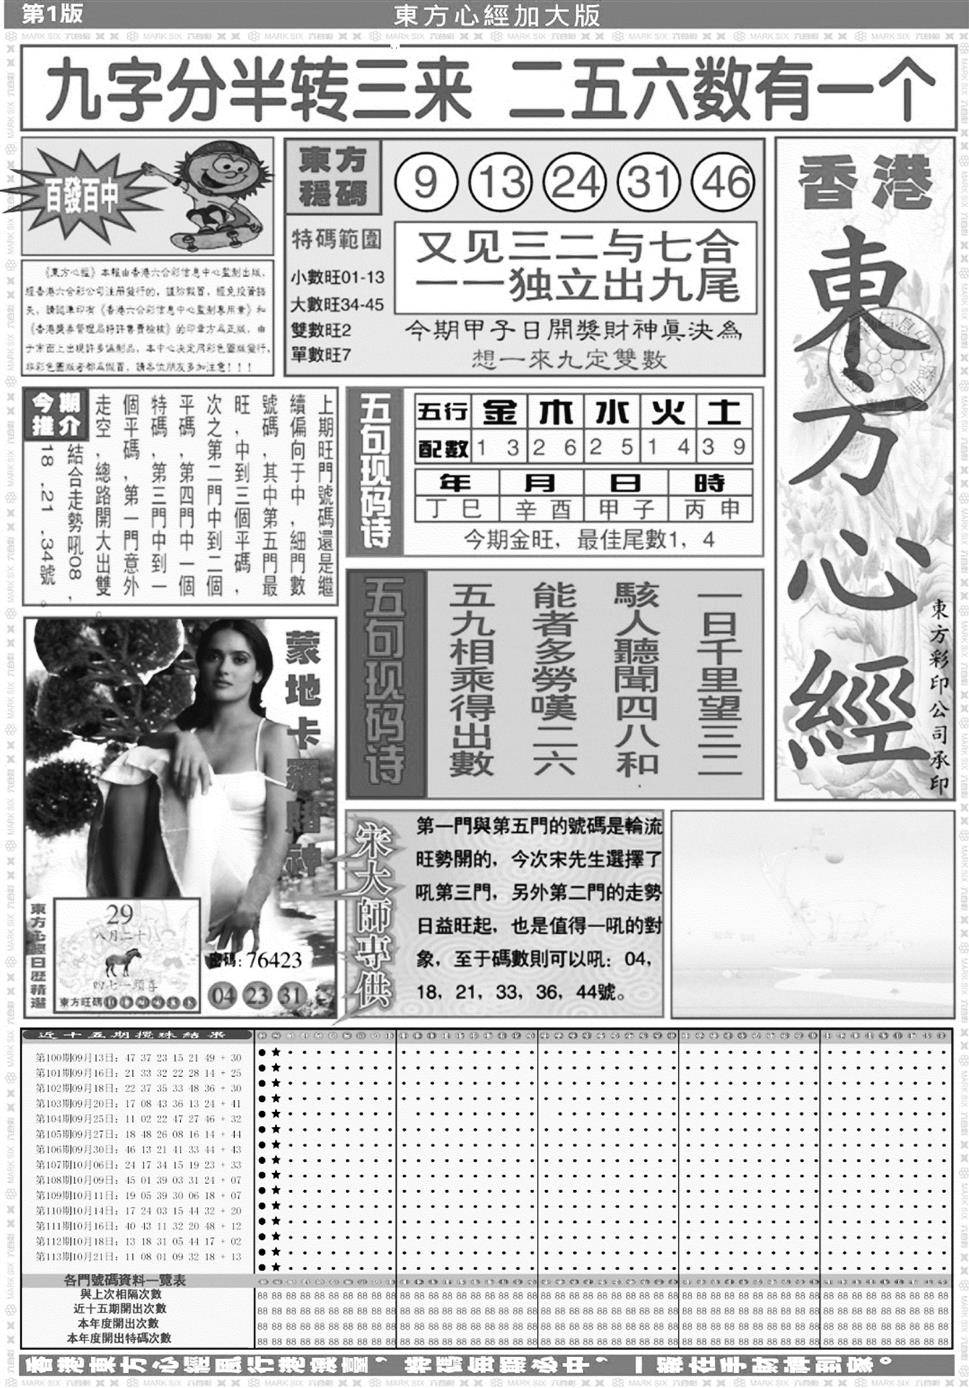 第1版
東方心經加大版
九字分半转三来 二五六数有一个
百發百中
《東方心經》本報由香港六合彩信息中心監制出版、
經香港六合彩公司注册發行的，謹防假冒，經免投資錯
失。請認準印有《香港六合彩信息中心監制專用章》和
《香港獎券管理局特許售賣檢核》的印章方爲正版，由
于市面上出現許多僞制品，本中心決定用彩色圖版發行，
非彩色圖版者都爲假冒，請各位朋友多加注意！！！
東方
穩碼
9 13 24 31 46
特碼範圍
小數旺01-13
大數旺34-45
雙數旺2
單數旺7
又见三二与七合
一一独立出九尾
今期甲子日開獎財神真決為
想一來九定雙數
香港
東方心經
東方彩印公司承印
今期
推介
上期旺門號碼還是繼
續偏向于中，細門數
號碼，其中第五門最
旺，中到三個平碼，
次之第二門中到二個
平碼，第四門中一個
特碼，第三門中到一
個平碼，第一門意外
走空，總路開大出雙
結合走勢吼08，
18，21，34號。
五句现码诗
五行 金 木 水 火 土
配數 1 3 2 6 2 5 1 4 3 9
年 月 日 時
丁巳 辛酉 甲子 丙申
今期金旺，最佳尾數1，4
五句现码诗
一日千里望三二
駭人聽聞四八和
能者多勞嘆二六
五九相乘得出數
蒙地卡羅賭神
東方心經日歷精選
29
八月二十八
四七一頭尋
東方旺碼
密碼：76423
04 23 31
宋大師專供
第一門與第五門的號碼是輪流
旺勢開的，今次宋先生選擇了
吼第三門，另外第二門的走勢
日益旺起，也是值得一吼的對
象，至于碼數則可以吼：04，
18，21，33，36，44號。
近十五期攪珠結果
第100期09月13日：47 37 23 15 21 49 + 30
第101期09月16日：21 33 32 22 28 14 + 25
第102期09月18日：22 37 35 33 48 36 + 30
第103期09月20日：17 08 43 36 13 24 + 41
第104期09月25日：11 02 22 47 27 46 + 32
第105期09月27日：18 48 26 08 16 14 + 44
第106期09月30日：46 13 21 41 33 44 + 43
第107期10月06日：24 17 34 15 19 23 + 33
第108期10月09日：45 01 39 03 31 24 + 07
第109期10月11日：19 05 39 30 06 18 + 07
第110期10月14日：17 24 03 15 44 32 + 20
第111期10月16日：40 43 11 32 20 48 + 12
第112期10月18日：13 18 31 05 44 17 + 02
第113期10月21日：11 08 01 09 32 18 + 13
各門號碼資料一覽表
與上次相隔次數
近十五期開出次數
本年度開出次數
本年度開出特碼次數
香港東方心經風行港澳臺，特碼每期必中，一版在手財神到家。